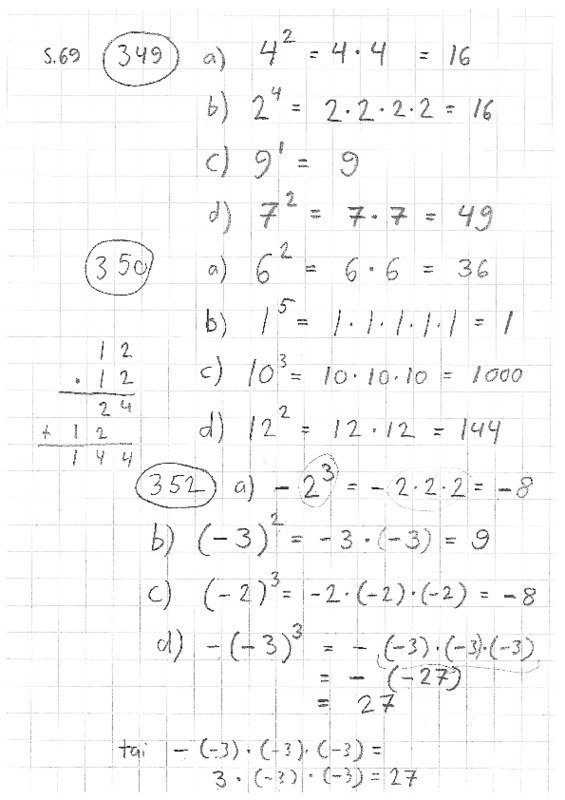 s.69 349 a) 4² = 4 · 4 = 16
b) 2⁴ = 2 · 2 · 2 · 2 = 16
c) 9¹ = 9
d) 7² = 7 · 7 = 49
350 a) 6² = 6 · 6 = 36
b) 1⁵ = 1 · 1 · 1 · 1 · 1 = 1
c) 10³ = 10 · 10 · 10 = 1000
d) 12² = 12 · 12 = 144
12
· 12
24
+ 12
144
352 a) - 2³ = - 2 · 2 · 2 = -8
b) (-3)² = -3 · (-3) = 9
c) (-2)³ = -2 · (-2) · (-2) = -8
d) -(-3)³ = - (-3) · (-3) · (-3)
= - (-27)
= 27
tai -(-3) · (-3) · (-3) =
3 · (-3) · (-3) = 27